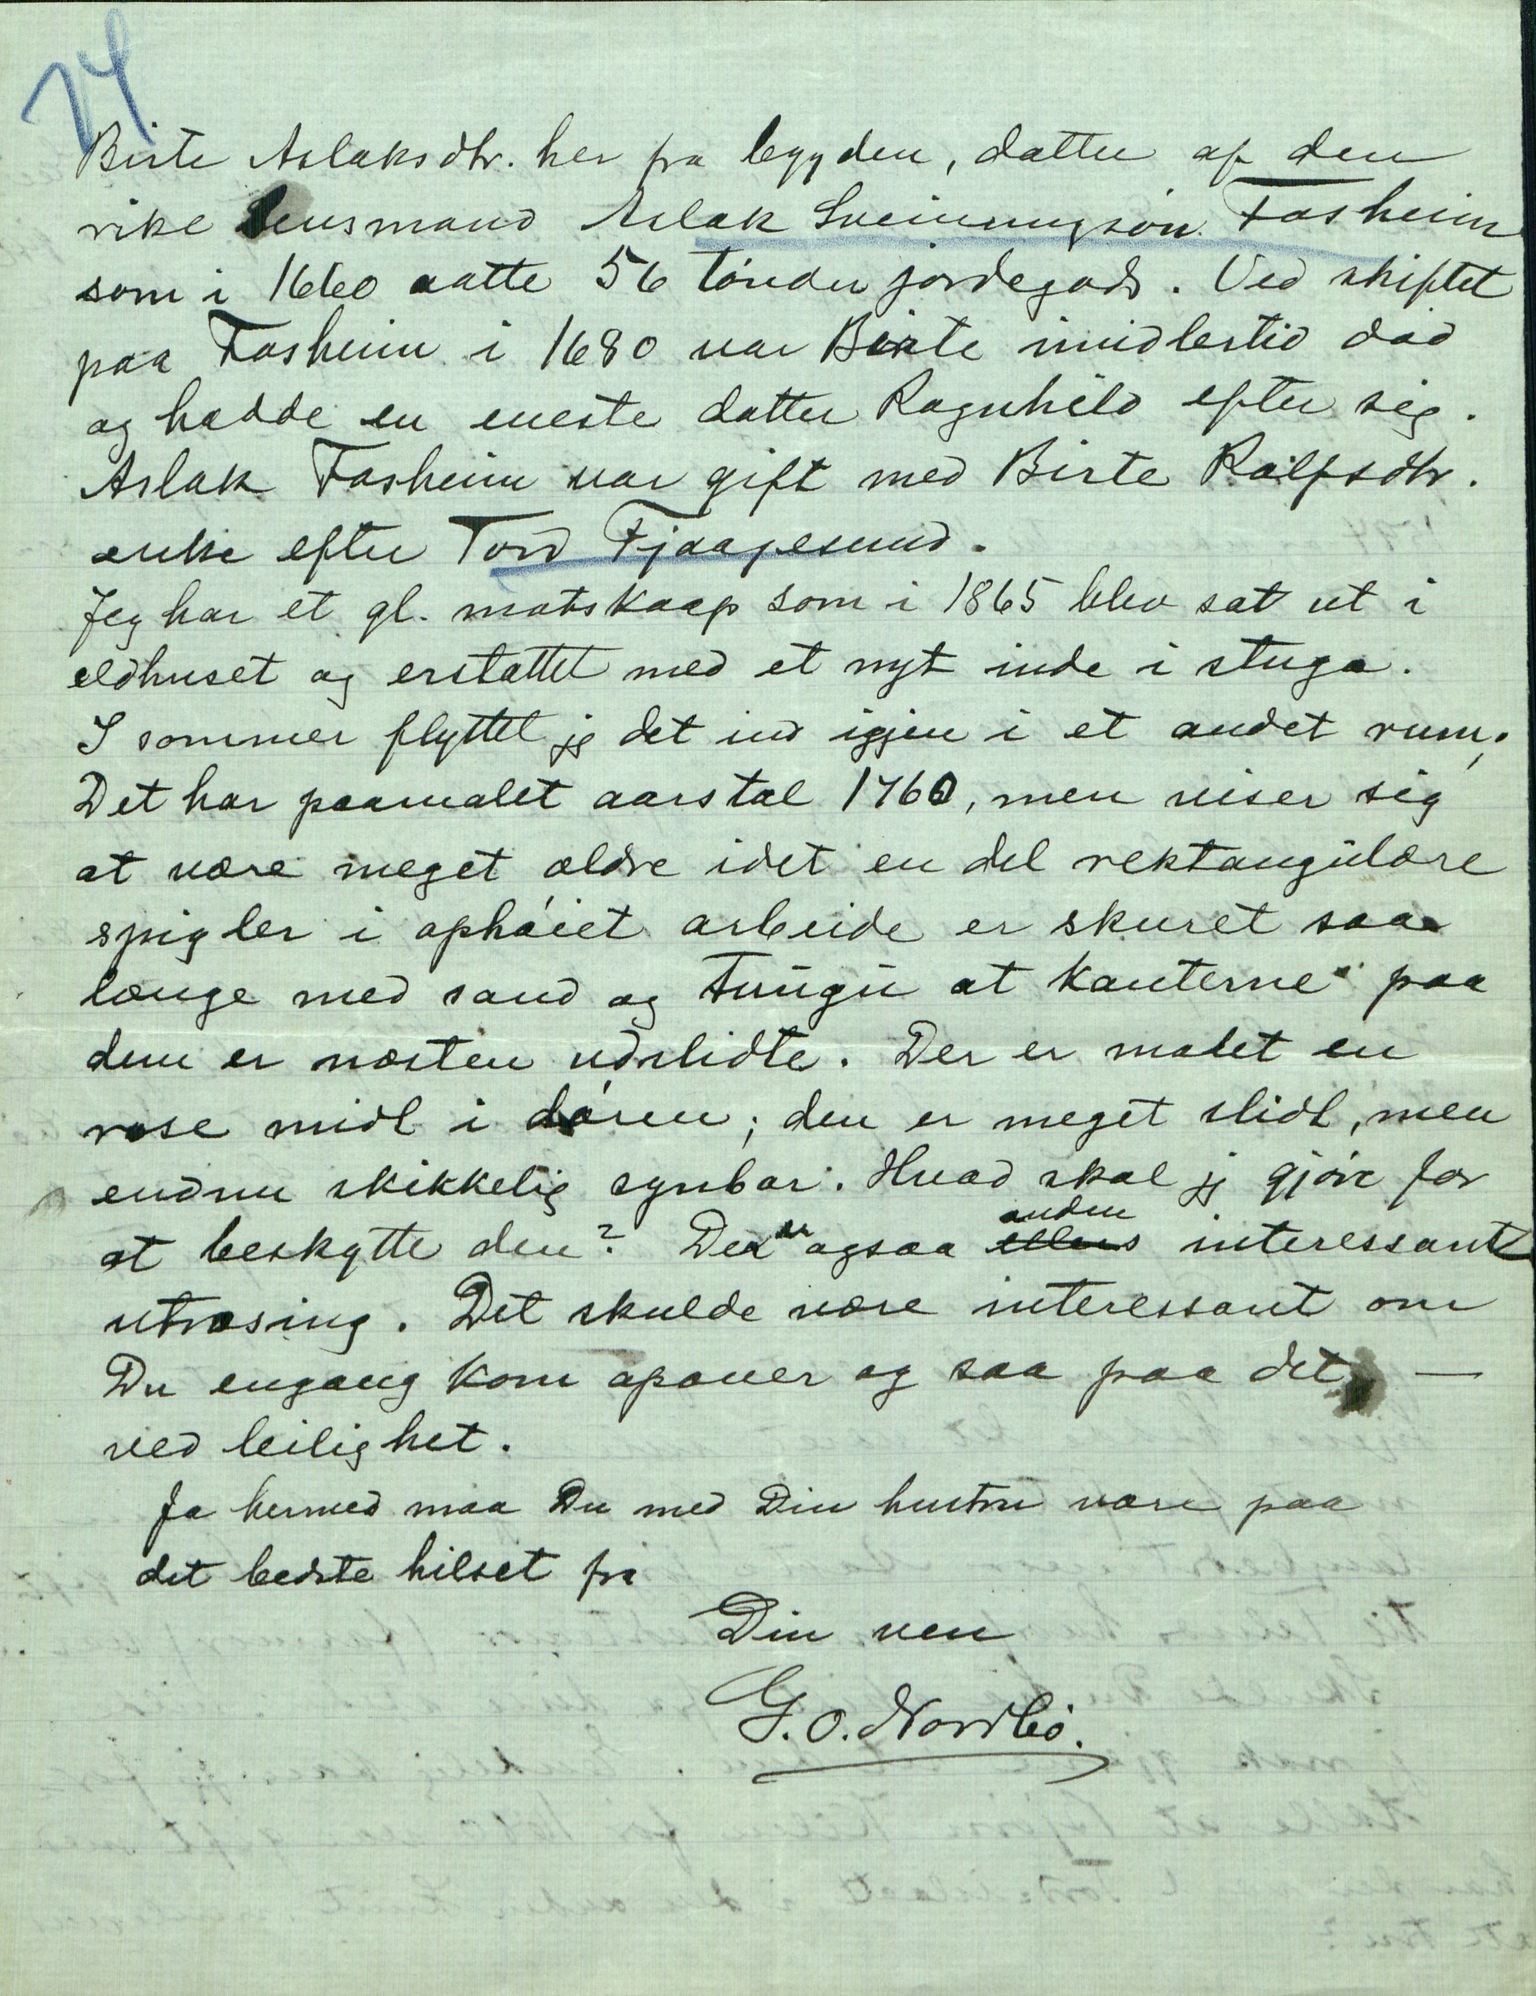 24
Birte Aslaksdtr. her fra bygden, datter af den
rike lensmand Aslak Sveinungsön Fosheim
som i 1660 aatte 56 tönder jordegods. Ved skiftet
paa Fosheim i 1680 var Birte imidlertid död
og hadde en eneste datter Ragnhild efter sig.
Aslak Fosheim var gift med Birte Rolfsdtr.
enke efter Tord Fjaagesund.
Jeg har et gl. matskaap som i 1865 blev sat ut i
eldhuset og erstattet med et nyt inde i stuga.
I sommer flyttet jg det ind igjen i et andet rum;
Det har paamalet aarstal 1760, men viser sig
at være meget ældre idet en del rektangulære
spigler i ophöiet arbeide er skuret saa
længe med sand og Tungu at kanterne paa
dem er næsten udslidte. Der er malet en
rose midt i dören; den er meget slidt, men
endnu skikkelig synbar. Hvad skal jg gjöre for
at beskytte den? Der er ogsaa ellers anden interessant
utrosing. Det skulde være interessant om
Du engang kom opover og saa paa det, —
ved leilighet.
Ja hermed maa Du med Din hustru være paa
det bedste hilset fra
Din ven
G. O. Nordbö.